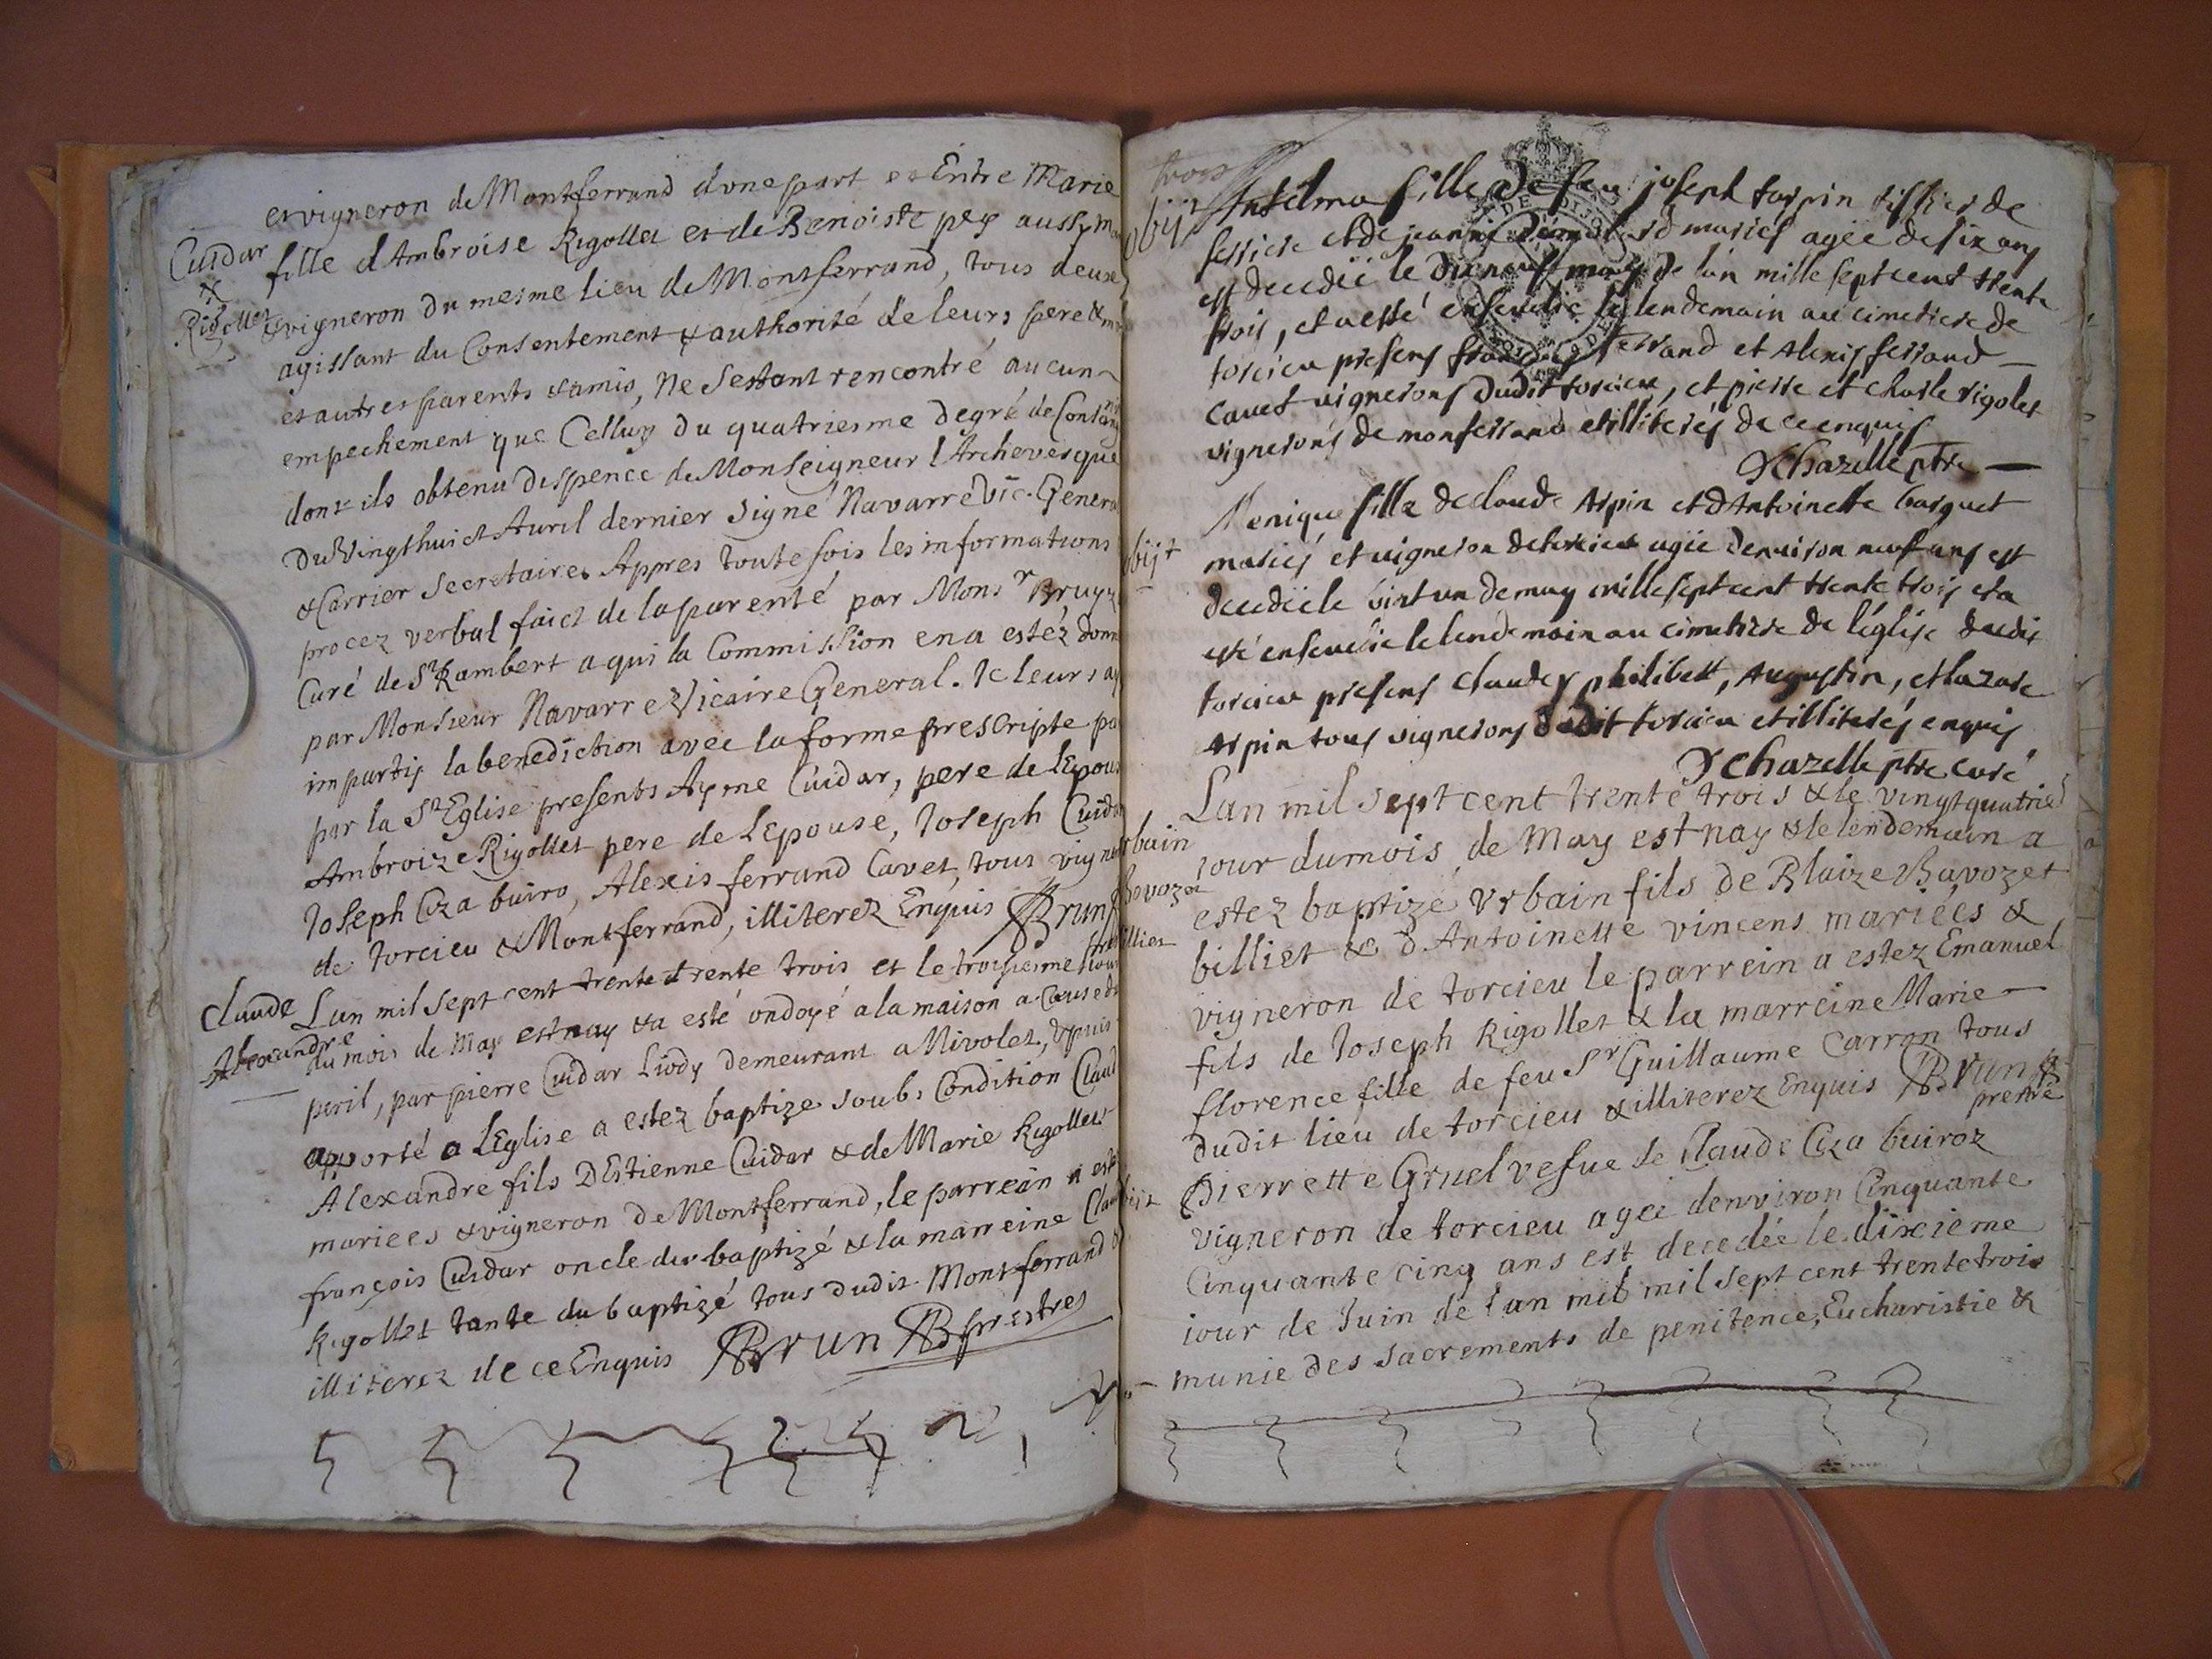 et vigneron de Montferrand dune part et Entre Marie
Cuidar
&
Rigollet
fille d'Ambroise Rigollet et de Benoiste pey aussy
& vigneron du mesme lieu de Montferrand, tous deux
agissant du Consentement & authorité de leurs pere &
et autres parents & amis, Ne Sestant rencontré aucun
empechement que Celluy du quatriesme degré de
dont ils obtenu dispence de Monseigneur l'Archevesque
Du Vingthuict Avril dernier Signé Navarre Vic. General
& Carrier Secretaire. Appres toutefois les informations
procez verbal faict de la parenté par Monsr
Curé de St Rambert a qui la Commission en a estéz
par Monsieur Navarre Vicaire General. Ie leurs ay
imparty la benediction avec la forme prescripte
par la Ste Eglise presents Ayme Cuidar, pere de
Ambroize Rigollet pere de L'Epouse, Joseph Cuidar
Joseph Ciza buiro, Alexis ferrand Cavet, tous
de torcieu & Montferrand, illiterez Enquis Brun
Claude
Alexandre
Lan mil Sept cent trente trente trois et le troisiesme Jour
du mois de May est nay & a esté ondoyé a la maison a Cause du
peril, par pierre Cuidar Liody demeurant a Nivolet, depuis
apporté a L'Eglise a estez baptize soubs Condition Claude
Alexandre fils D'Estienne Cuidar & de Marie Rigollet
mariees & vigneron De Montferrand, le parrein a
françois Cuidar oncle du baptizé & la marreine
Rigollet tante du baptizé tous dudit Montferrand &
illiterez de ce Enquis Brun prestres
trois
obijt
Antelma fille de feu joseph tarpin tissier de
et de mariés agée de six ans
est decedée le dixneuf may de l'an mille sept cent trente
trois, et a esté ensevelie le lendemain au cimetiere de
torcieu presens ferrand et Alexis ferrand
cavet vignerons dudit torcieu, et pierre et charle rigolet
vignerons de monferrand et illiterés de ce enquis
Dchazelle ptre
obijt
Monique fille de claude Arpin et d'Antoinette barquet
mariés et vigneron de torcieu agée denviron neuf ans est
decedée le vint un de may mille sept cent trente trois et a
esté ensevelie le lendemain au cimetiere de l'église dudit
torcieu presens claude, philibert, Augustin, et lazare
Arpin tous vignerons dudit torcieu et illiterés enquis
Dchazelle ptre curé
Lan mil Sept cent trente trois & le vingt quatrie
iour du mois de May est nay & le lendemain a
estez baptizé Urbain fils de Blaize Bavozet
billiet & d'Antoinette vincens mariées &
vigneron de torcieu le parrein a estez Emanuel
fils de Joseph Rigollet & la marreine Marie
florence fille de feu Sr Guillaume Carron tous
dudit lieu de torcieu & illiterez Enquis Brun
prestre
Pierrette Gruel vefue de Claude Ciza buiroz
vigneron de torcieu agee denviron Cinquante
Cinquante cinq ans est decedée le dixieme
iour de Juin de lan mil mil sept cent trente trois
munie des sacrements de penitence, Eucharistie &